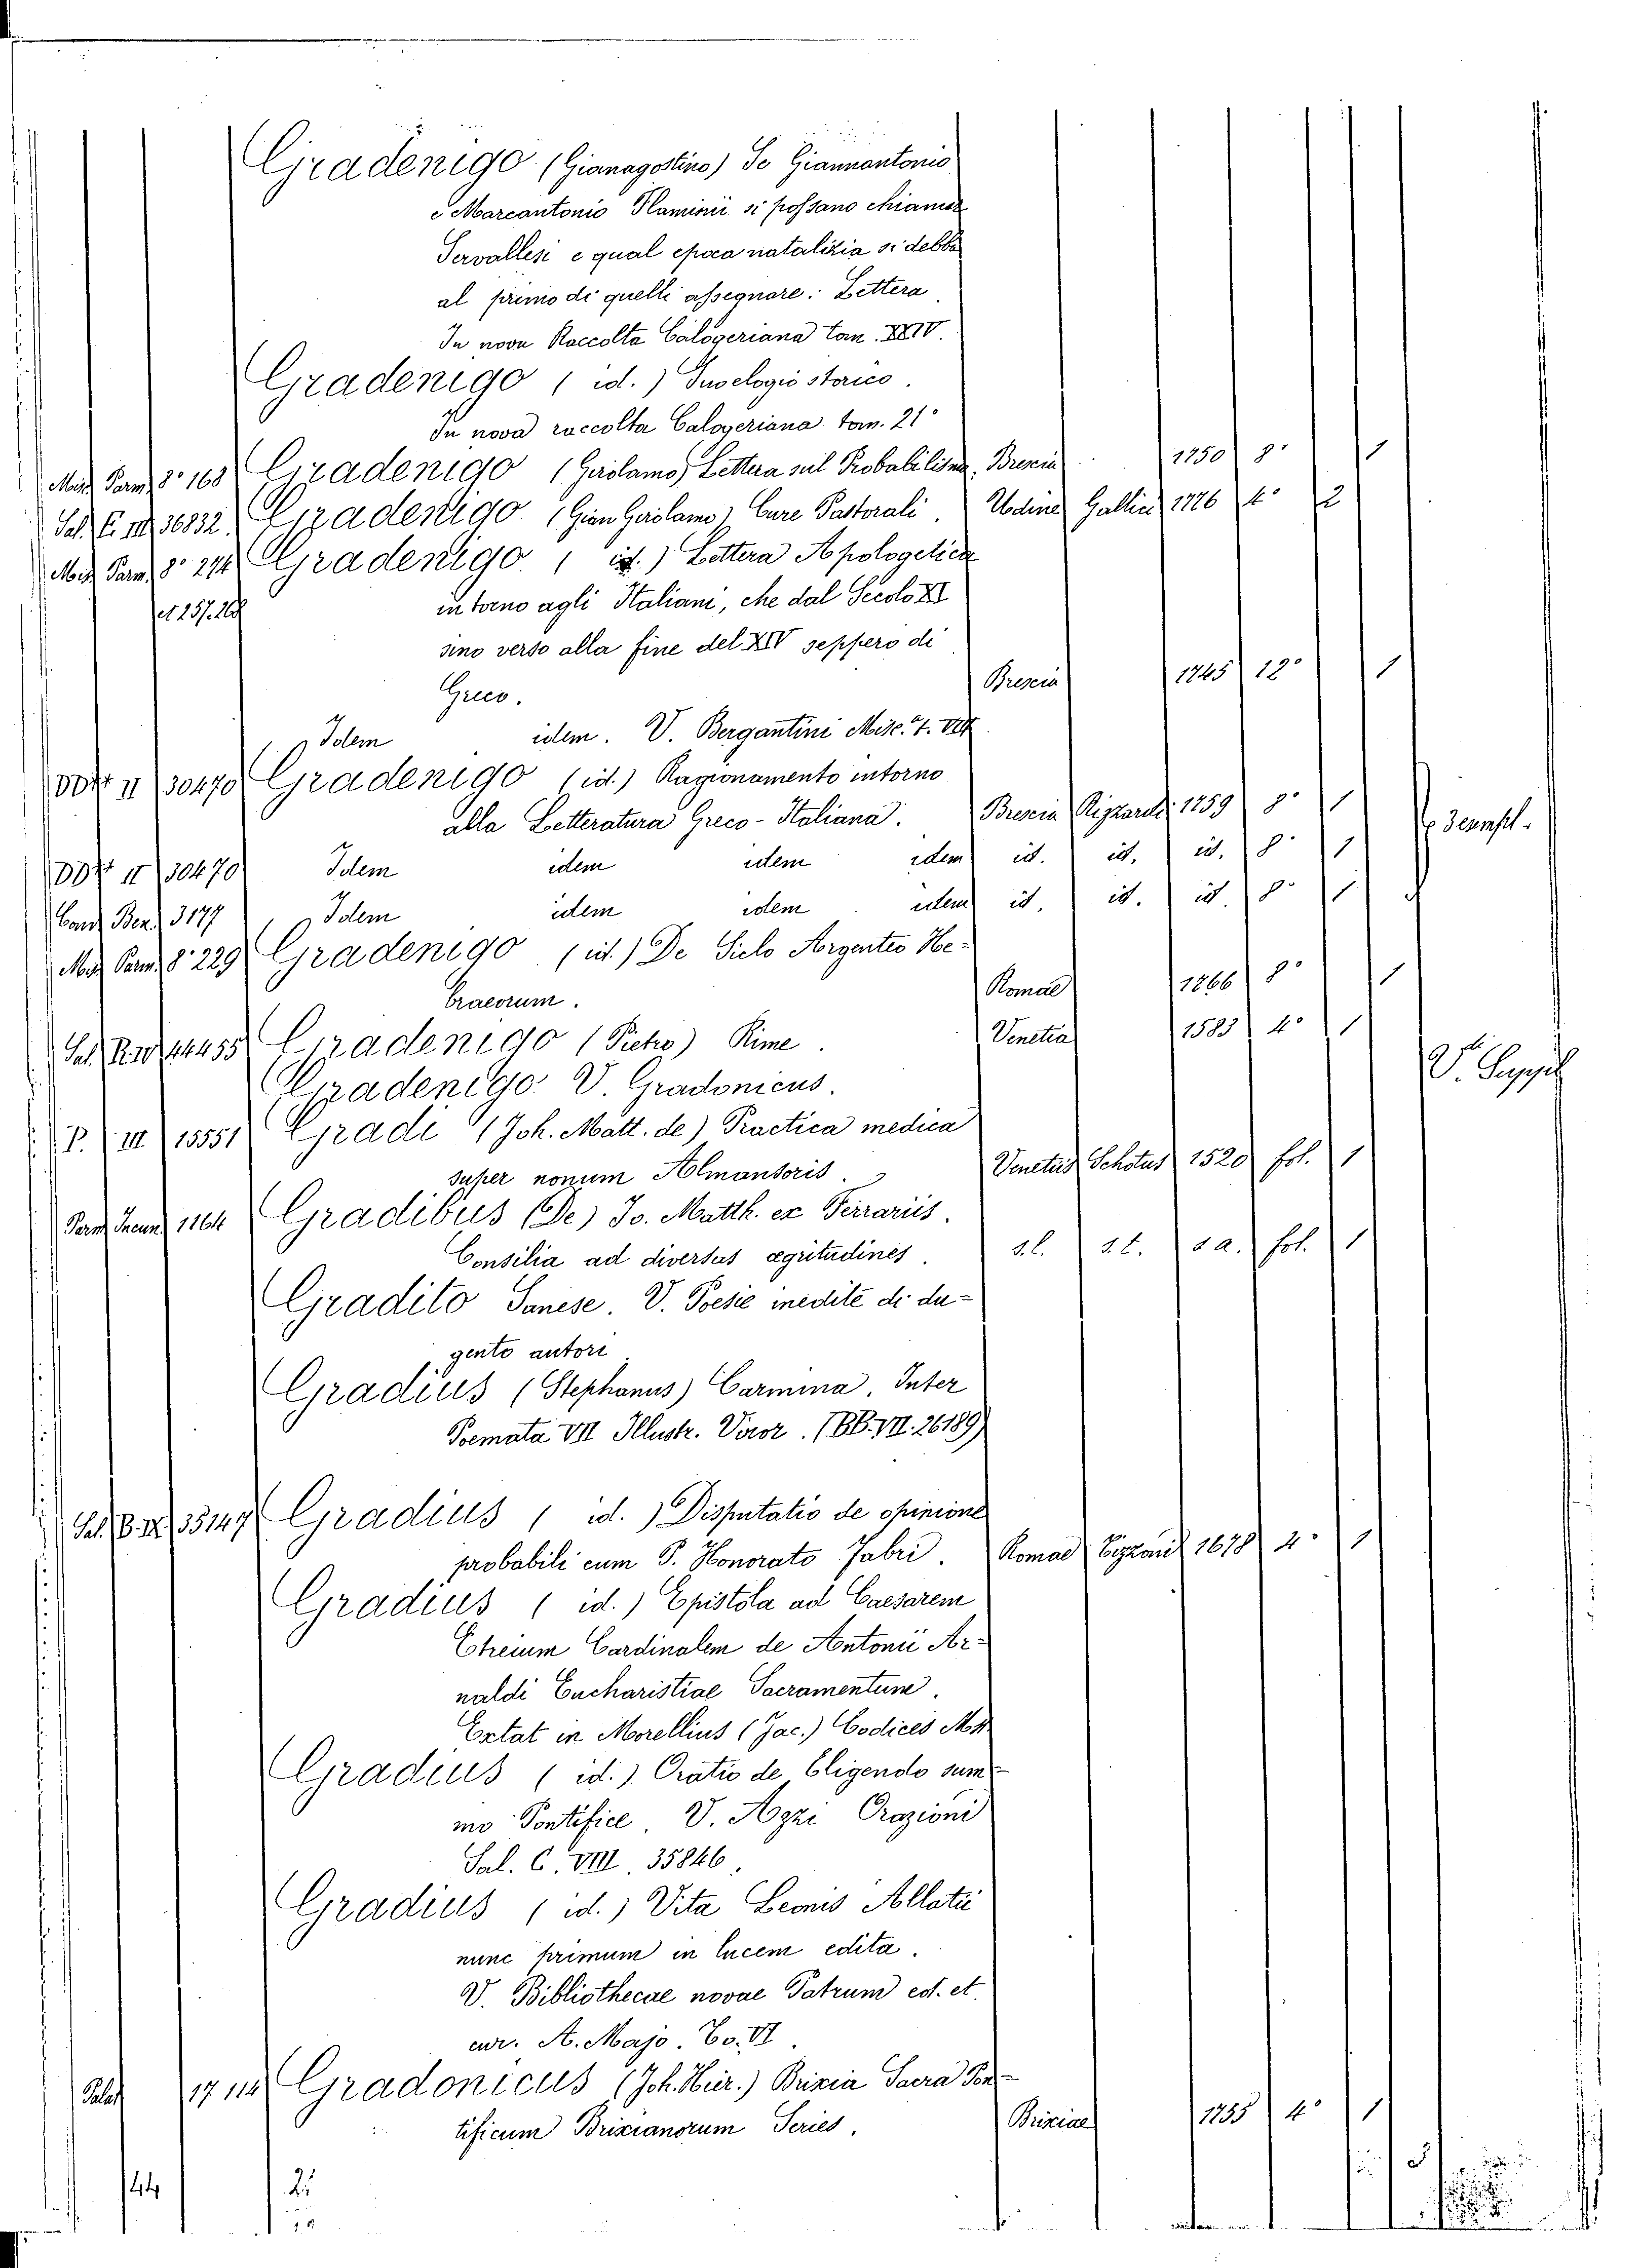 Gradenigo (Gianagostino) Se Giannantonio
e Marcantonio Flaminii si possano chiamar
Servallesi e qual epoca natalizia si debba
al primo di quelli assegnare: Lettera
In nova Raccolta Calogeriana tom. XXIV.
Gradenigo ( id. ) Suo elogio storico.
In nova raccolta Calogeriana tom. 21°
Misc. Parm. 8° 168 Gradenigo (Girolamo) Lettera sul Probabilismo. Brescia 1750 8° 1
Sal. E. III 36832. Gradenigo (Gian Girolamo) Cure Pastorali. Udine Gallici 1776 4° 2
Misc. Parm. 8° 274 Gradenigo ( id. ) Lettera Apologetica
et 257.268 intorno agli Italiani, che dal Secolo XI
sino verso alla fine del XIV seppero di
Greco. Brescia 1745 12° 1
Idem idem. V. Bergantini Misc. t. VII
II 30470 Gradenigo (id.) Ragionamento intorno
alla Letteratura Greco-Italiana. Brescia Rizzardi 1759 8° 1
II 30470 Idem idem idem idem id. id. id. 8° 1
Band. Ben. 3177 Idem idem idem idem id. id. id. 8° 1
Misc. Parm. 8° 229 Gradenigo (id.) De Siclo Argenteo He-
braeorum. Romae 1766 8° 1
Sal. R. IV 44455 Gradenigo (Pietro) Rime. Venetia 1583 4° 1
V. Suppl.
Gradenigo V. Gradonicus.
P. III 15551 Gradi (Joh. Matt. de) Practica medica
super nonum Almansoris. Venetiis Schotus 1520 fol. 1
Parm. Incun. 1164 Gradibus (De) Jo. Matth. ex Ferrariis.
Consilia ad diversas ægritudines. s.l. s.t. s.a. fol. 1
Gradito Sanese. V. Poesie inedite di du-
gento autori
Gradius (Stephanus) Carmina. Inter
Poemata VII Illustr. Viror. (BB. VII. 26189)
Sal. B. IX 35147 Gradius ( id. ) Disputatio de opinione
probabili cum P. Honorato Fabri. Romae 1678 4° 1
Gradius ( id. ) Epistola ad Caesarem
Etreium Cardinalem de Antonii Ar-
naldi Eucharistiae Sacramentum.
Extat in Morellius (Jac.) Codices Mss
Gradius ( id. ) Oratio de Eligendo sum-
mo Pontifice. V. Azzi Orazioni
Sal. C. VIII. 35846.
Gradius ( id. ) Vita Leonis Allatii
nunc primum in lucem edita.
V. Bibliothecae novae Patrum ed. et
cur. A. Majo. To. VI.
Palat 17 114 Gradonicus (Joh. Hier.) Brixia Sacra Pon-
tificum Brixianorum Series. Brixiae 1755 4° 1
44 2